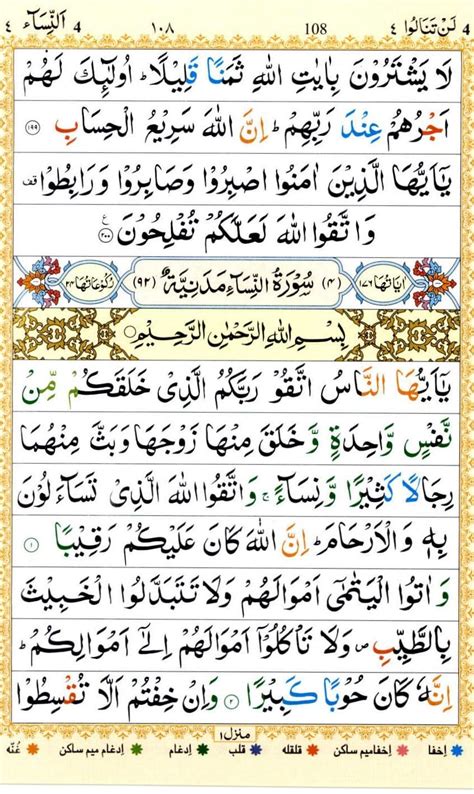 لَنْ تَنَالُوا ٤ 108 ١٠٨ اَلنِّسَآء ٤
لَا يَشْتَرُوْنَ بِاٰيٰتِ اللّٰهِ ثَمَنًا قَلِيْلًا ؕ اُولٰٓئِكَ لَهُمْ
اَجْرُهُمْ عِنْدَ رَبِّهِمْ ؕ اِنَّ اللّٰهَ سَرِيْعُ الْحِسَابِ ١٩٩
يٰۤاَيُّهَا الَّذِيْنَ اٰمَنُوا اصْبِرُوْا وَصَابِرُوْا وَرَابِطُوْا قف
وَاتَّقُوا اللّٰهَ لَعَلَّكُمْ تُفْلِحُوْنَ ٢٠٠ ع
اٰيَاتُهَا ١٧٦ (٤) سُوْرَةُ النِّسَآءِ مَدَنِيَّةٌ (٩٢) رُكُوْعَاتُهَا ٢٤
بِسْمِ اللّٰهِ الرَّحْمٰنِ الرَّحِيْمِ
يٰۤاَيُّهَا النَّاسُ اتَّقُوْا رَبَّكُمُ الَّذِيْ خَلَقَكُمْ مِّنْ
نَّفْسٍ وَّاحِدَةٍ وَّخَلَقَ مِنْهَا زَوْجَهَا وَبَثَّ مِنْهُمَا
رِجَالًا كَثِيْرًا وَّنِسَآءً ۚ وَاتَّقُوا اللّٰهَ الَّذِيْ تَسَآءَلُوْنَ
بِهٖ وَالْاَرْحَامَ ؕ اِنَّ اللّٰهَ كَانَ عَلَيْكُمْ رَقِيْبًا ١
وَاٰتُوا الْيَتٰمٰٓى اَمْوَالَهُمْ وَلَا تَتَبَدَّلُوا الْخَبِيْثَ
بِالطَّيِّبِ ص وَلَا تَاْكُلُوْۤا اَمْوَالَهُمْ اِلٰٓى اَمْوَالِكُمْ ؕ
اِنَّهٗ كَانَ حُوْبًا كَبِيْرًا ٢ وَاِنْ خِفْتُمْ اَلَّا تُقْسِطُوْا
منزل ١
اِخفا اِخفامیم ساکن قلقله قلب اِدغام اِدغام میم ساکن غُنّه